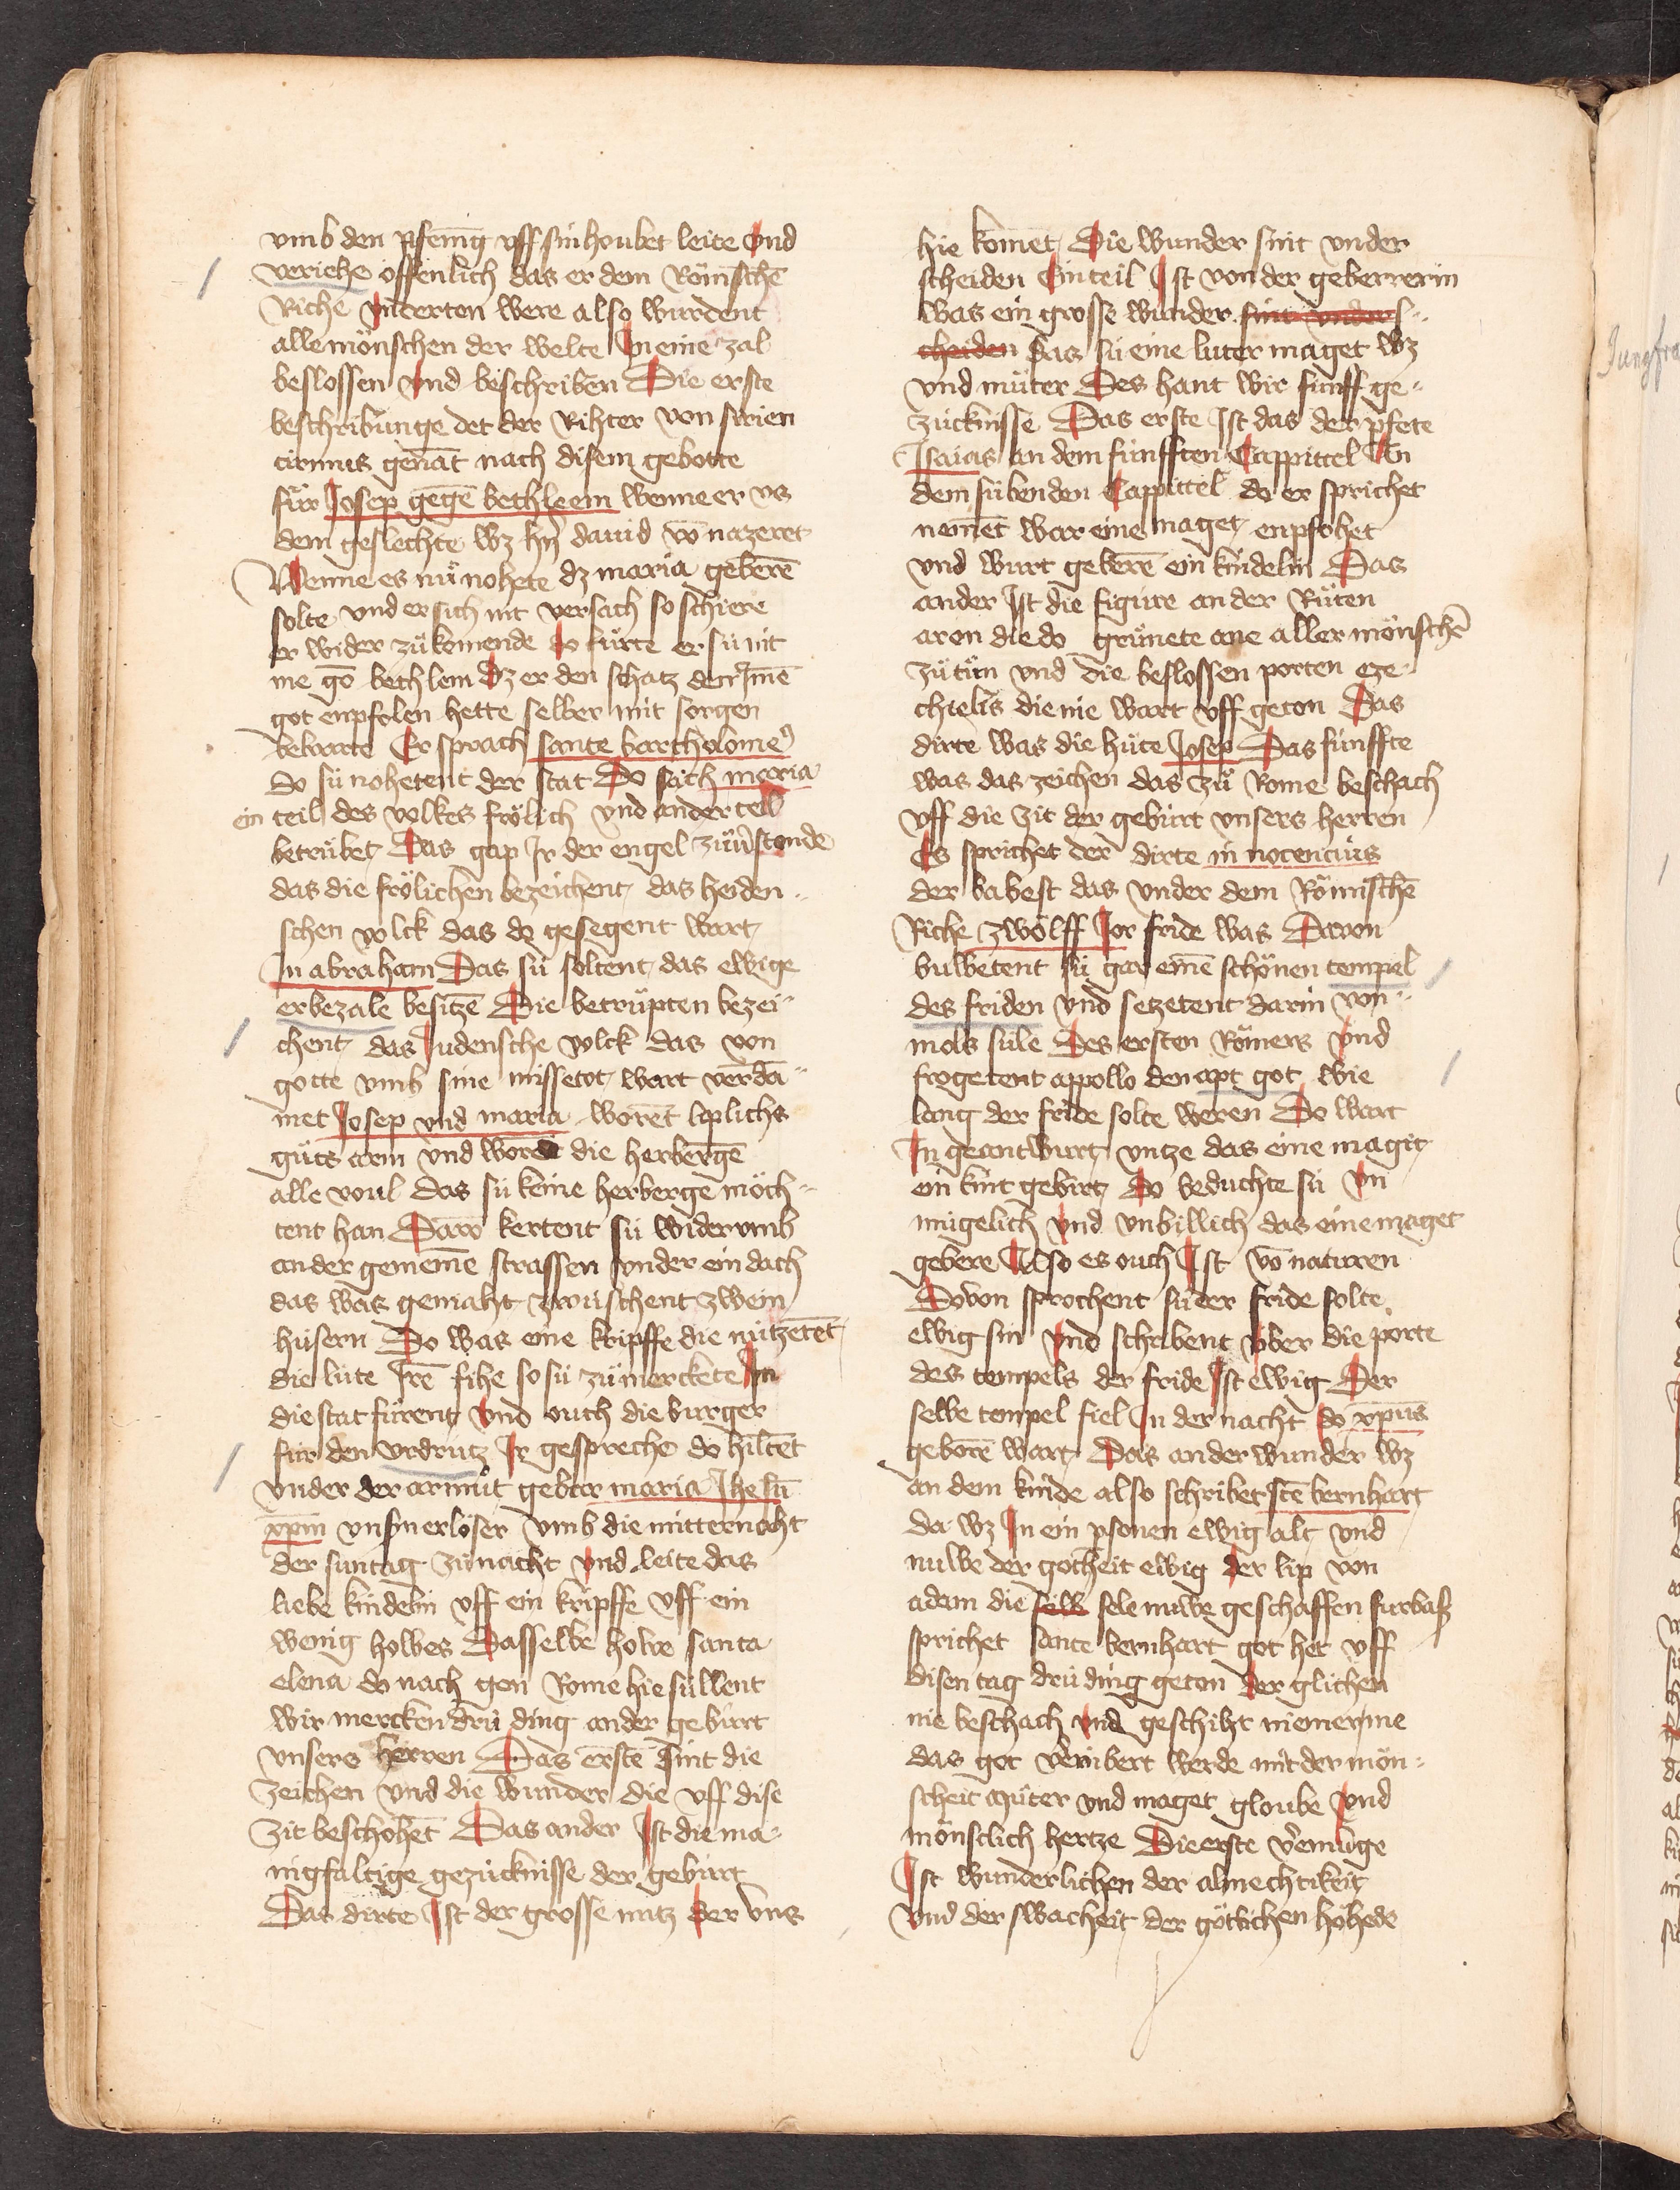 vmb den pfenīg vff sin houbet leite vnd
veriehe offenlich das er dem Römschē
Riche vnderton were also wurdent
alle mönschen der welte Jn eine zal
beslossen vnd beschriben Die erste
beschribunge det der Rihter von sirien
cirinus genāt nach disem gebotte
für Josep gegē bethleem wenne er vs
dem geslechte wz her dauid vō nazeret
Wenne es nů nohete dz maria geberē
solte vnd er sich nit versach so schiere
er wider zů komende do fůrte er sü mit
me gō bethlem Dz er den schatz den Jme
got enpfolen hette selber mit sorgen
bewarte Er sprach sante bartholome9
do sü nohetent der stat Do sach maria
ein teil des volkes frölich vnd ander teil
betrübet Das gap Jr der engel zů verstonde
das die frölichen bezeichent das heiden
schen volck das do gesegent wart
Jn abraham Das sü soltent das ewige
erbezale besitzē Die betrüpten bezei
chent das Judensche volck das von
gotte vmb sine missetot wart verdā
met Josep vnd maria worēt liplichs
gůts arm vnd worent die herbergē
alle voul das sü keine herberge möch
tent han Darō kertent sü widerumb
an der gemeinē strassen vnder ein dach
das was gemaht zwüschent zwein
hüsern Do was eine kripffe die nützetēt
die lüte Jrē fihe so sü zů merckete Jn
die stat fůrent vnd ouch die burger
für den vrdrutz Jr gespreche do hiltēt
vnder der armůt gebar maria Jhesū
xpm vnsern erlöser vmb die mitternaht
der suntag zů nacht vnd leite das
liebe kindelin vff ein kripffe vff ein
wenig howes Dasselbe howe santa
elena do nach gen Rome hie süllent
wir mercken drü ding an der gebürt
vnsers herren Das erste sint die
zeichen vnd die wunder die vff dise
zit beschohēt Das ander Jst die ma
nigfaltige gezücknisse der gebürt
Das dirte Jst der grosse nutz der vns
hie komet Die wunder sint vnder
scheiden Ein teil Jst von der geberrerin
was ein grosse wunder sint vnders
cheiden das sü eine luter maget wz
vnd můter Des hant wir fünff ge
zücknisse Das erste Jst das der pfete
Jsaias an dem fünfften Cappittel An
dem sübenden Cappittel do er sprichet
nemēt war eine maget enpfohet
vnd wurt geberē ein kindelin Das
ander Jst die figure an der Růten
aron die do grůnete ane aller mönschē
zůtůn vnd die beslossen porten eze
chielis die nie wart vff geton Das
dirte was die hůte Josep Das fünffte
was das zeichen das zů Rome beschach
vff die zit der gebürt vnsers herren
Es sprichet der dirte innocencius
der babest das vnder dem Römischē
Riche zwölff Jor fride was Davon
buwetent sü gar einē schönen tempel
des friden vnd setzetent darin von
mols süle Des ersten Römers vnd
frogetent appollo den apt got wie
lang der fride solte weren Do wart
Jn geantwurt vntze das eine magit
ein kint gebirt Do beduchte sü Vn
mügelich vnd vnbillich das eine maget
gebere Also es ouch Jst vō naturen
Dovon sprochent sü der fride solte
ewig sin vnd schribent über die porte
des tempels der fride Jst ewig Der
selbe tempel fiel Jn der nacht do xpus
geborē wart Das ander wunder wz
an dem kinde also schribet scē bernhart
da wz Jn ein psonen ewig alt vnd
nuwe der gotheit ewig der lip von
adam die selb sele nuwe geschaffen furbaß
sprichet sante bernhart got het vff
disen tag drü ding geton der glichen
nie beschach vnd geschiht niemer me
das got vereinbert werde mit der mön
scheit můter vnd maget gloube vnd
mönsclich hertze Die erste vereinunge
Jst wunderlichen der almechtikeit
Vnd der swacheit der götlichen höhede